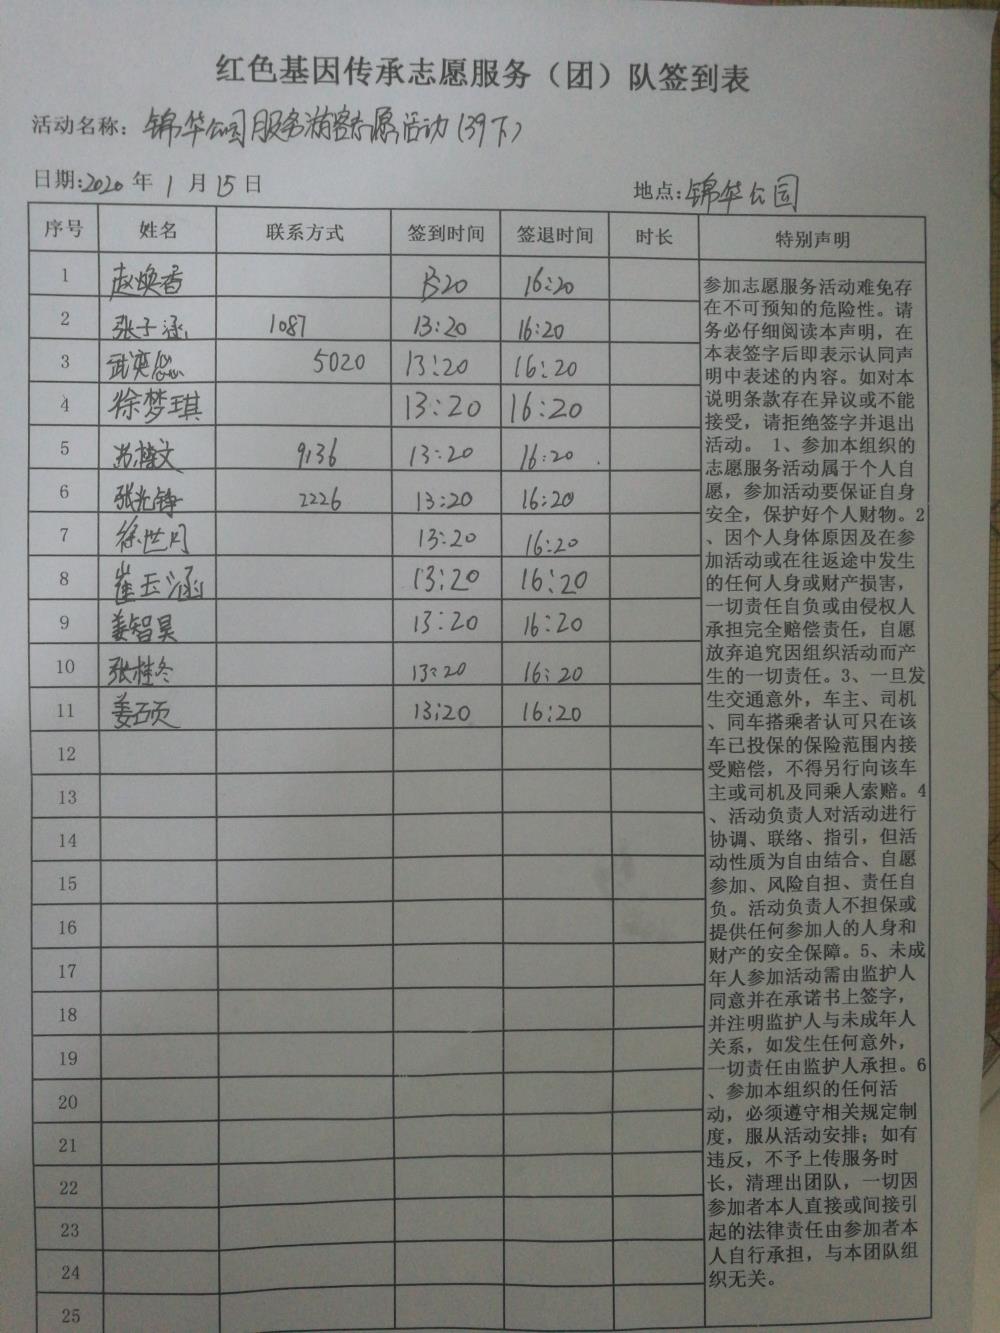 红色基因传承志愿服务（团）队签到表
活动名称：锦华公园服务游客志愿活动(39下)
日期:2020 年 1 月 15 日
地点:锦华公园
序号 姓名 联系方式 签到时间 签退时间 时长 特别声明
1 赵焕香 13:20 16:20
2 张子涵 1087 13:20 16:20
3 武奕 5020 13:20 16:20
4 徐梦琪 13:20 16:20
5 9136 13:20 16:20
6 张光铮 2226 13:20 16:20
7 徐世月 13:20 16:20
8 崔玉涵 13:20 16:20
9 姜智昊 13:20 16:20
10 张桂冬 13:20 16:20
11 姜硕 13:20 16:20
12
13
14
15
16
17
18
19
20
21
22
23
24
25
参加志愿服务活动难免存
在不可预知的危险性。请
务必仔细阅读本声明，在
本表签字后即表示认同声
明中表述的内容。如对本
说明条款存在异议或不能
接受，请拒绝签字并退出
活动。 1、参加本组织的
志愿服务活动属于个人自
愿，参加活动要保证自身
安全，保护好个人财物。2
、因个人身体原因及在参
加活动或在往返途中发生
的任何人身或财产损害，
一切责任自负或由侵权人
承担完全赔偿责任，自愿
放弃追究因组织活动而产
生的一切责任。3、一旦发
生交通意外，车主、司机
、同车搭乘者认可只在该
车已投保的保险范围内接
受赔偿，不得另行向该车
主或司机及同乘人索赔。4
、活动负责人对活动进行
协调、联络、指引，但活
动性质为自由结合、自愿
参加、风险自担、责任自
负。活动负责人不担保或
提供任何参加人的人身和
财产的安全保障。5、未成
年人参加活动需由监护人
同意并在承诺书上签字，
并注明监护人与未成年人
关系，如发生任何意外，
一切责任由监护人承担。6
、参加本组织的任何活
动，必须遵守相关规定制
度，服从活动安排；如有
违反，不予上传服务时
长，清理出团队，一切因
参加者本人直接或间接引
起的法律责任由参加者本
人自行承担，与本团队组
织无关。